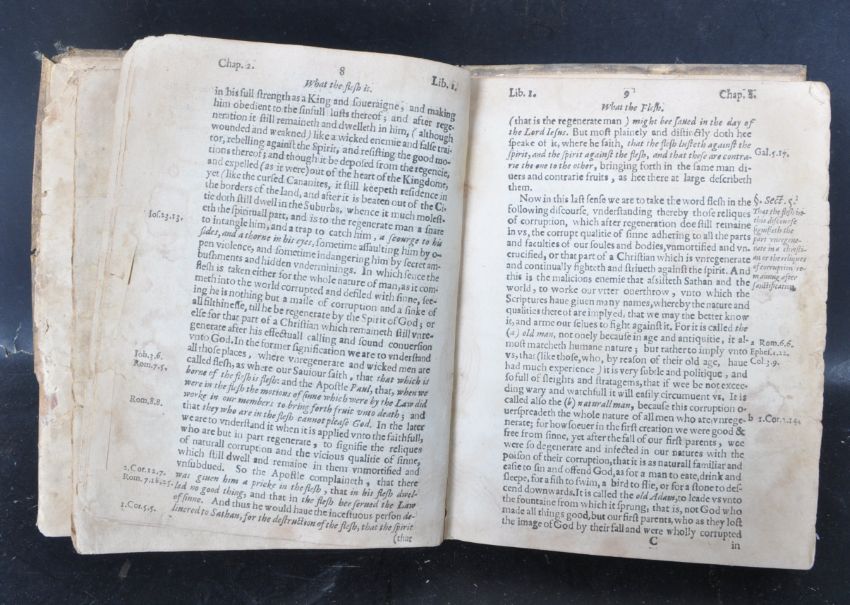 Chap. 2. 8 Lib. 1.
What the flesh is.
in his full strength as a King and soueraigne, and making
him obedient to the sinfull lusts thereof; and after rege-
neration it still remaineth and dwelleth in him, (although
wounded and weakned) like a wicked enemie and false trai-
tor, rebelling against the Spirit, and resisting the good mo-
tions thereof; and though it be deposed from the regencie,
and expelled (as it were) out of the heart of the Kingdome,
yet (like the cursed Cananites, it still keepeth residence in
the borders of the land, and after it is beaten out of the Ci-
tie doth still dwell in the Suburbs, whence it much molest-
eth the spirituall part, and is to the regenerate man a snare
Ios.23.13. to intangle him, and a trap to catch him, a scourge to his
sides, and a thorne in his eyes, sometime assaulting him by o-
pen violence, and sometime indangering him by secret am-
bushments and hidden vnderminings. In which sence the
flesh is taken either for the whole nature of man, as it com-
meth into the world corrupted and defiled with sinne, see-
ing he is nothing but a masse of corruption and a sinke of
all filthinesse, till he be regenerate by the Spirit of God; or
else for that part of a Christian which remaineth still vnre-
generate after his effectuall calling and sound conuersion
vnto God. In the former signification we are to vnderstand
Ioh.3.6. all those places, where vnregenerate and wicked men are
Rom.7.5. called flesh, as where our Sauiour saith, that that which is
borne of the flesh is flesh: and the Apostle Paul, that, when we
were in the flesh the motions of sinne which were by the Law did
Rom.8.8. worke in our members to bring forth fruit vnto death; and
that they who are in the flesh cannot please God. In the later
we are to vnderstand it when it is applied vnto the faithfull,
who are but in part regenerate, to signifie the reliques
of naturall corruption and the vicious qualitie of sinne,
which still dwell and remaine in them vnmortified and
2.Cor.12.7. vnsubdued. So the Apostle complaineth, that there
Rom. 7.18.25. was giuen him a pricke in the flesh; that in his flesh dwel-
led no good thing, and that in the flesh he serued the Law
1.Cor.5.5. of sinne. And thus he would haue the incestuous person de-
liuered to Sathan, for the destruction of the flesh, that the spirit
(that
Lib. 1. 9 Chap. 8.
What the Flesh.
(that is the regenerate man) might bee saued in the day of
the Lord Iesus. But most plainely and distinctly doth hee
speake of it, where he saith, that the flesh lusteth against the
spirit, and the spirit against the flesh, and that these are contra- Gal.5.17.
rie the one to the other, bringing forth in the same man di-
uers and contrarie fruits, as hee there at large describeth
them.
Now in this last sense we are to take the word flesh in the §. Sect. 5.
following discourse, vnderstanding thereby those reliques That the flesh in
of corruption, which after regeneration doe still remaine this discourse
in vs, the corrupt qualitie of sinne adhering to all the parts signifieth the
and faculties of our soules and bodies, vnmortified and vn- part vnregene-
crucified, or that part of a Christian which is vnregenerate rate in a
and continually fighteth and striueth against the spirit. And or the reliques
this is the malicious enemie that assisteth Sathan and the of corruption re-
world, to worke our vtter ouerthrow, vnto which the maining after
Scriptures haue giuen many names, whereby the nature and sanctification.
qualities thereof are implyed, that we may the better know
it, and arme our selues to fight against it. For it is called the
(a) old man, not onely because in age and antiquitie, it al- a Rom.6.6.
most matcheth humane nature; but rather to imply vnto Ephes.4.22.
vs, that (like those, who, by reason of their old age, haue Col.3.9.
had much experience) it is very subtle and politique, and
so full of sleights and stratagems, that if wee be not excee-
ding wary and watchfull it will easily circumuent vs. It is
called also the (b) naturall man, because this corruption o-
uerspreadeth the whole nature of all men who are vnrege- b 1.Cor.2.14.
nerate; for howsoeuer in the first creation we were good &
free from sinne, yet after the fall of our first parents, wee
were so degenerate and infected in our natures with the
poison of their corruption, that it is as naturall familiar and
easie to sin and offend God, as for a man to eate, drink and
sleepe, for a fish to swim, a bird to flie, or for a stone to des-
cend downwards. It is called the old Adam, to leade vs vnto
the fountaine from which it sprung, that is, not God who
made all things good, but our first parents, who as they lost
the image of God by their fall and were wholly corrupted
C in